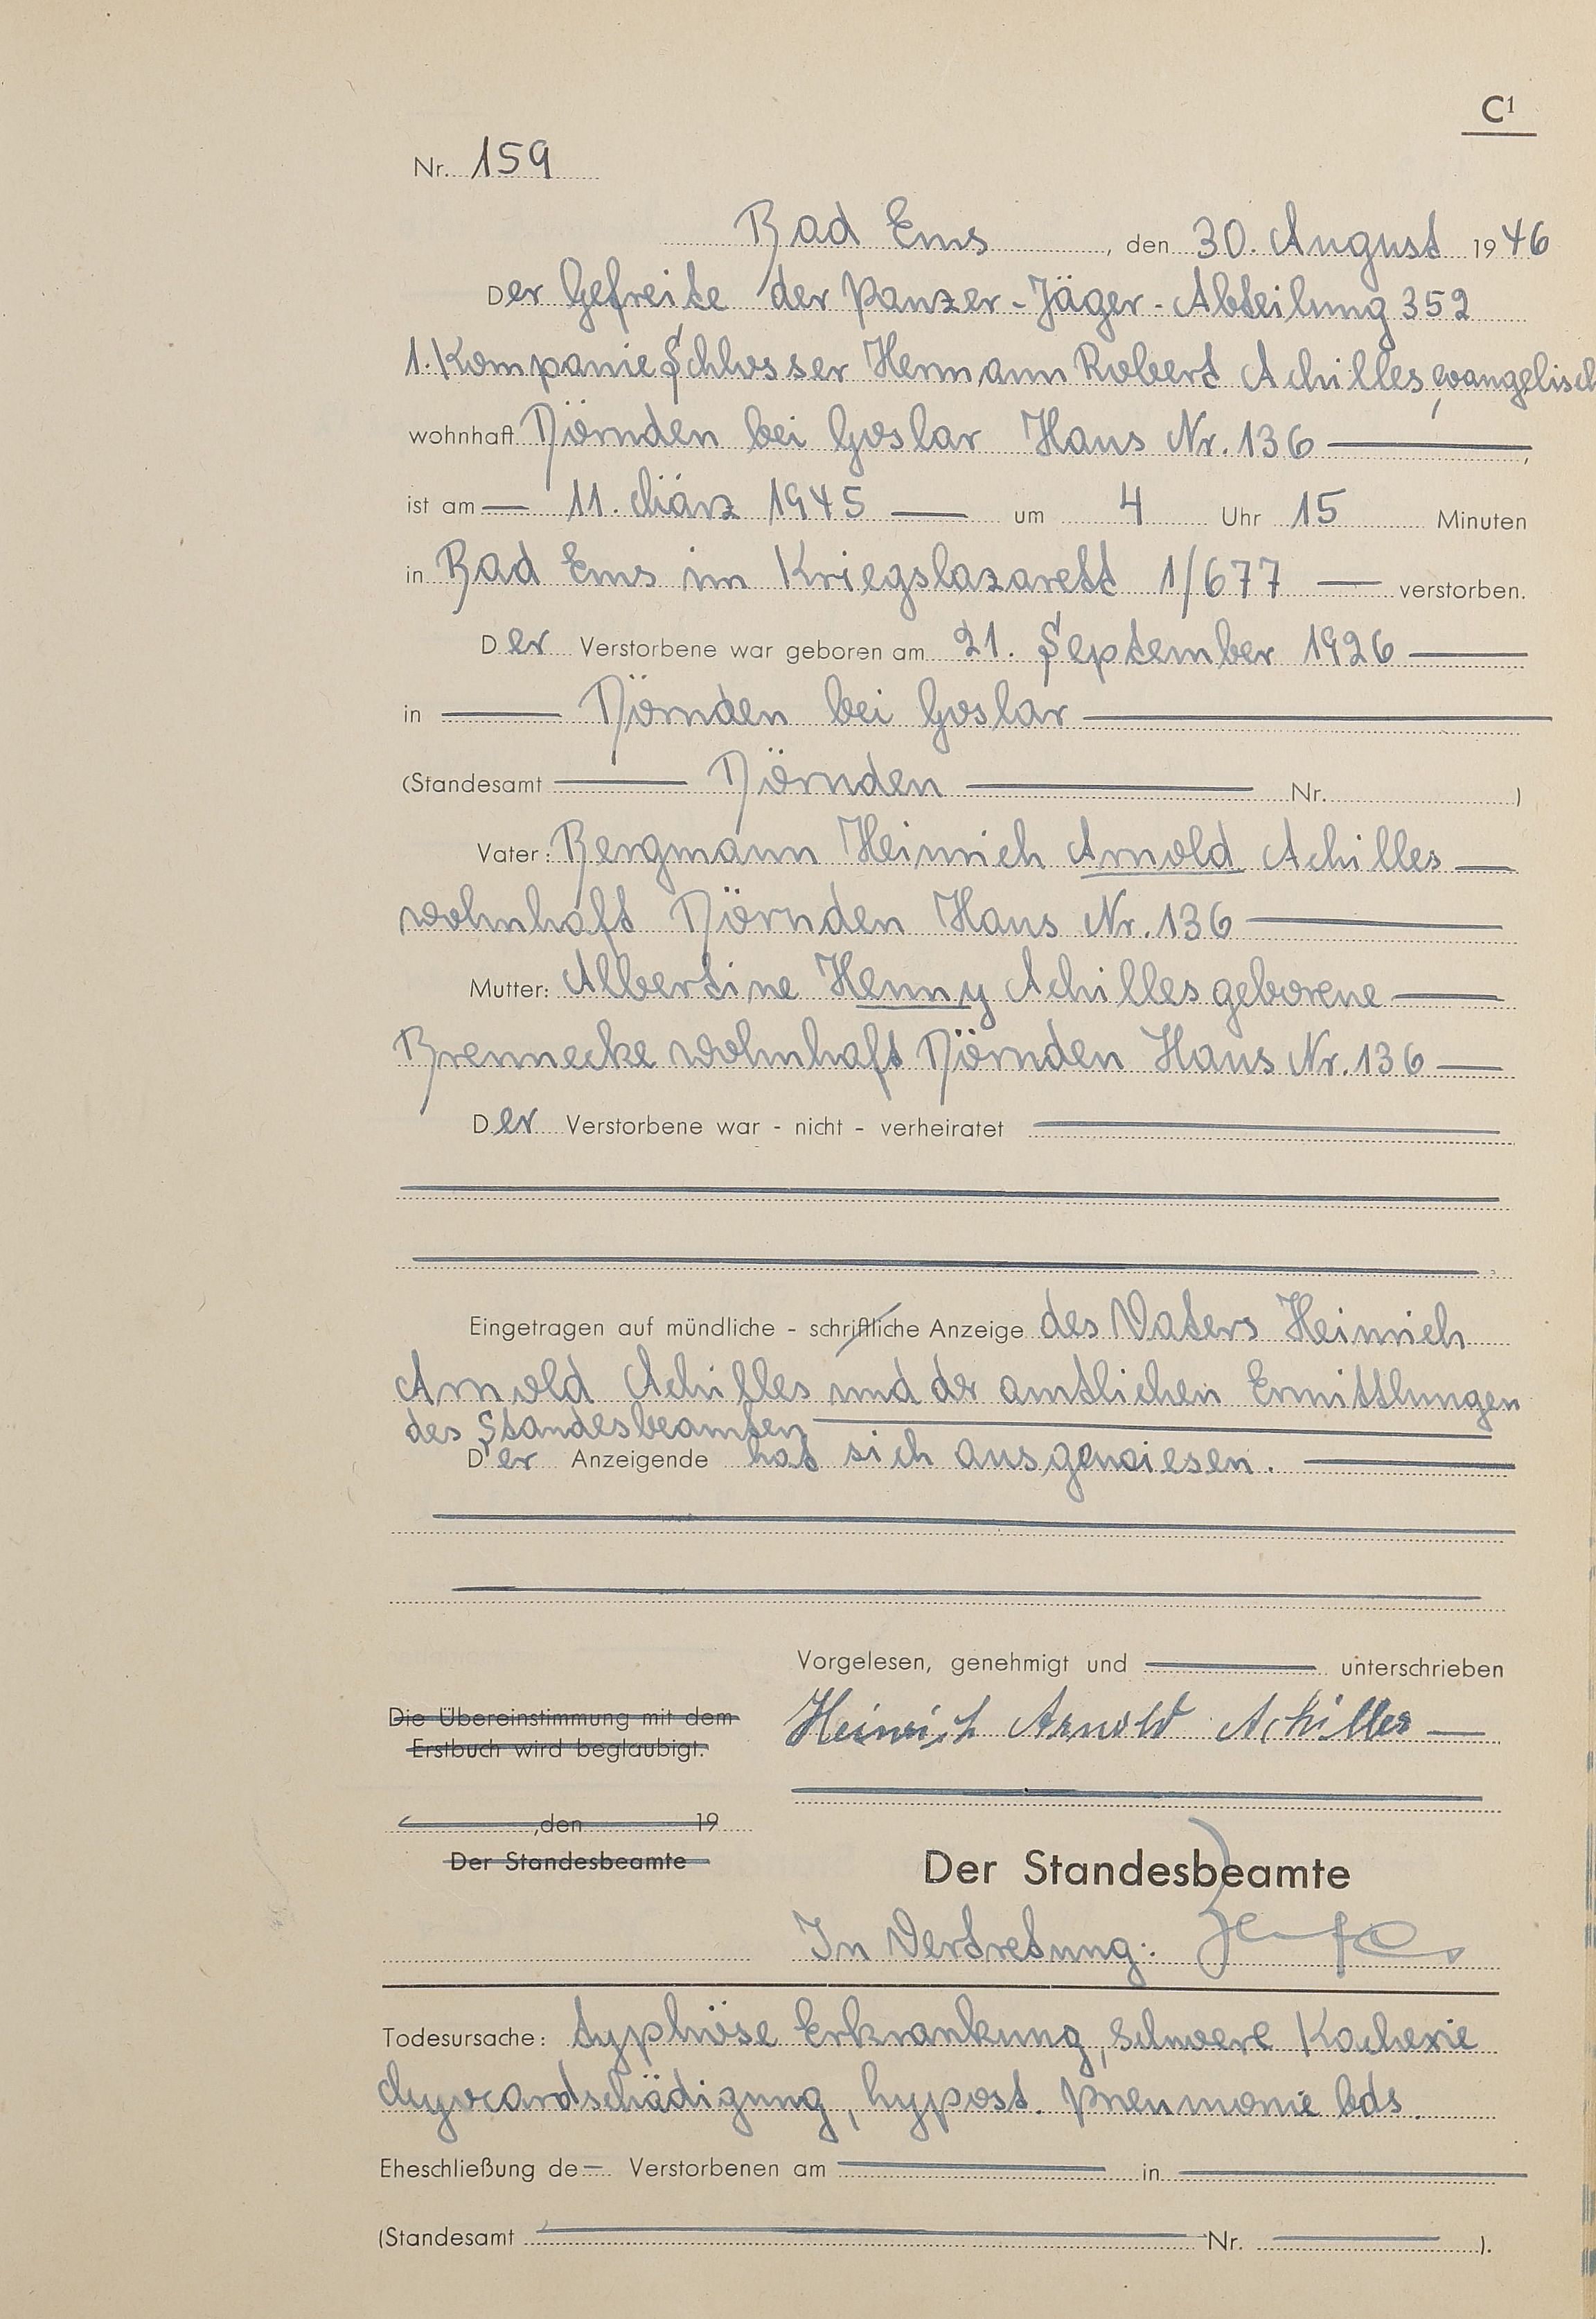 C¹
Nr. 159
Bad Ems, den 30. August 1946
Der Gefreite der Panzer-Jäger-Abteilung 352
1. Kompanie Schlosser Hermann Robert Achilles, evangelisch
wohnhaft Dörnden bei Goslar Haus Nr. 136
ist am 11. März 1945 um 4 Uhr 15 Minuten
in Bad Ems im Kriegslazarett 1/677 verstorben.
Der Verstorbene war geboren am 21. September 1926
in Dörnden bei Goslar
(Standesamt Dörnden Nr. )
Vater: Bergmann Heinrich Arnold Achilles
wohnhaft Dörnden Haus Nr. 136
Mutter: Albertine Henny Achilles geborene
Brennecke wohnhaft Dörnden Haus Nr. 136
Der Verstorbene war - nicht - verheiratet
Eingetragen auf mündliche - schriftliche Anzeige des Vaters Heinrich
Arnold Achilles und der amtlichen Ermittlungen
des Standesbeamten
Der Anzeigende hat sich ausgewiesen.
Vorgelesen, genehmigt und unterschrieben
Die Übereinstimmung mit dem
Erstbuch wird beglaubigt.
Heinrich Arnold Achilles
, den 19
Der Standesbeamte
Der Standesbeamte
In Vertretung:
Todesursache: typhöse Erkrankung, schwere Kachexie
Myocardschädigung, hypost. Pneumonie bds.
Eheschließung de Verstorbenen am in
(Standesamt Nr. ).